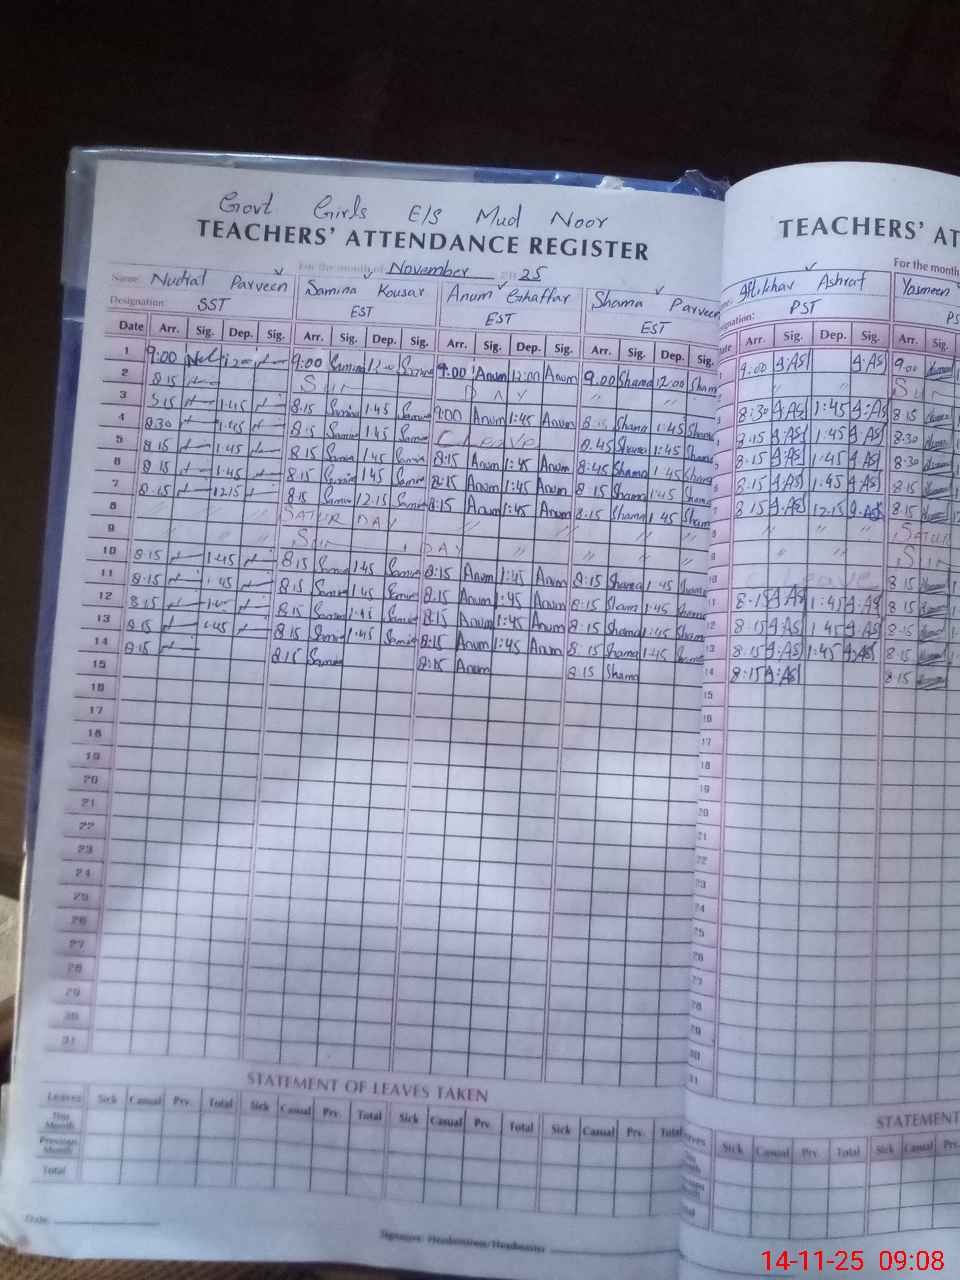 Govt Girls E/S Mud Noor
TEACHERS' ATTENDANCE REGISTER
For the month of November 2025
Name: Nudrat Parveen Samina Kousar Anum Ghaffar Shama Parveen
Designation: SST EST EST EST
Date Arr. Sig. Dep. Sig. Arr. Sig. Dep. Sig. Arr. Sig. Dep. Sig. Arr. Sig. Dep. Sig.
1 9:00 12:00 9:00 Samina 12:00 Samina 9:00 Anum 12:00 Anum 9:00 Shama 12:00 Sham
2 8:15 Sun DAY
3 8:15 1:45 8:15 Samina 1:45 Samin 9:00 Anum 1:45 Anum Shama 1:45 Shama
4 8:30 1:45 8:15 Samin 1:45 Samin C Leave 8:45 Shama 1:45 Shama
5 8:15 1:45 8:15 Samin 1:45 Samin 8:15 Anum 1:45 Anum 8:45 Shama 1:45 Shama
6 8:15 1:45 8:15 Samin 1:45 Samin 8:15 Anum 1:45 Anum 8:15 Shama 1:45 Shama
7 8:15 12:15 8:15 Samin 12:15 Samin 8:15 Anum 1:45 Anum 8:15 Shama 1:45 Sham
8 SATUR DAY
9 Sun DAY
10 8:15 1:45 8:15 Samina 1:45 Samina 8:15 Anum 1:45 Anum 8:15 Shama 1:45 Shama
11 8:15 1:45 8:15 Samina 1:45 Samina 8:15 Anum 1:45 Anum 8:15 Sham 1:45 Shama
12 8:15 8:15 Samina 1:45 Samina 8:15 Anum 1:45 Anum 8:15 Shama 1:45 Sham
13 8:15 1:45 8:15 Samin 1:45 Samin 8:15 Anum 1:45 Anum 8:15 Shama 1:45 Shama
14 8:15 8:15 Samin 8:15 Anum 8:15 Shama
15
16
17
18
19
20
21
22
23
24
25
26
27
28
29
30
31
STATEMENT OF LEAVES TAKEN
Leaves Sick Casual Prv. Total Sick Casual Prv. Total Sick Casual Prv. Total Sick Casual Prv. Total
This Month
Previous Month
Total
Date:
Signature Headmistress/Headmaster
TEACHERS' AT
For the month
Ashraf Yasmeen
PST PS
Date Arr. Sig. Dep. Sig. Arr. Sig.
9:00 A.AS A.AS 9:00
Sun
8:30 A.AS 1:45 A.AS 8:15
8:15 A.AS 1:45 A.AS 8:30
8:15 A.AS 1:45 A.AS 8:30
8:15 A.AS 1:45 A.AS 8:15
8:15 A.AS 12:15 A.AS 8:15
SATUR
Sun
10 C Leave 8:15
11 8:15 A.AS 1:45 A.AS 8:15
12 8:15 A.AS 1:45 A.AS 8:15
13 8:15 A.AS 1:45 A.AS 8:15
14 8:15 A.AS 8:15
15
16
17
18
19
20
21
22
23
24
25
26
27
28
29
30
31
STATEMENT
Sick Casual Prv. Total Sick Casual Prv.
14-11-25 09:08